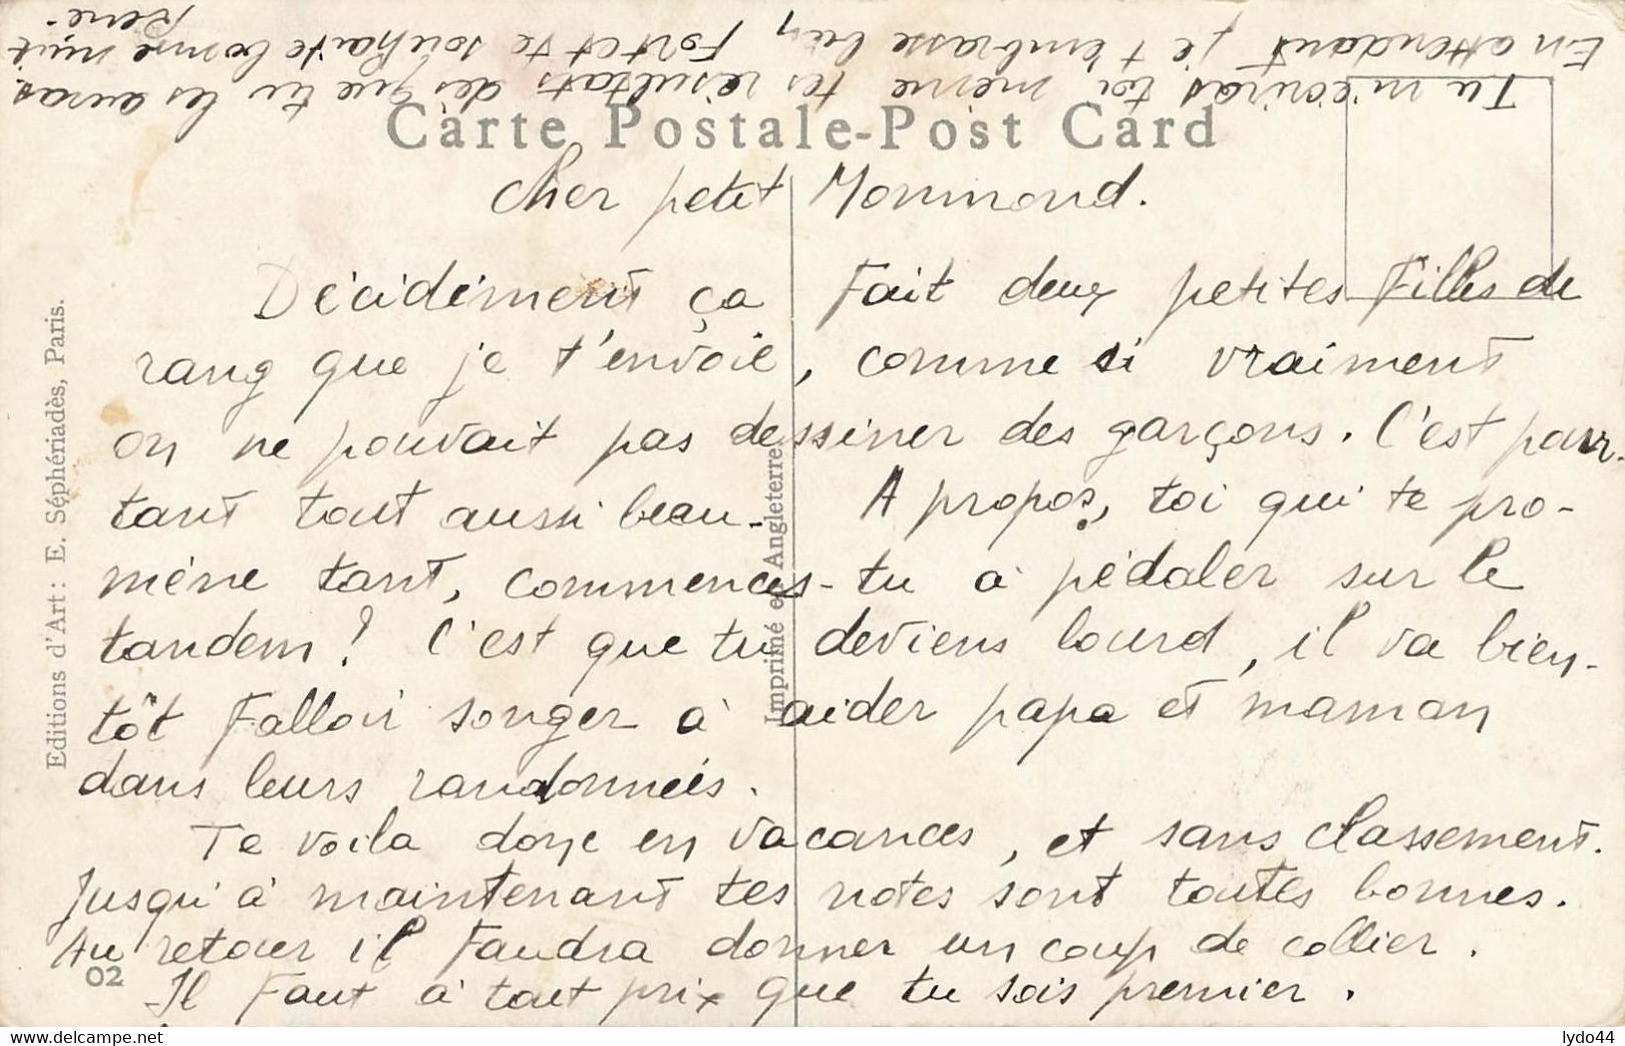 Carte Postale-Post Card
Cher petit Monmond.
Décidément ça fait deux petites filles de
rang que je t'envoie, comme si vraiment
on ne pouvait pas dessiner des garçons. C'est pour-
tant tout aussi beau - A propos, toi qui te pro-
mène tant, commences-tu à pédaler sur le
tandem ? C'est que tu deviens lourd, il va bien-
tôt falloir songer à aider papa et maman
dans leurs randonnées.
Te voila donc en vacances, et sans classement.
Jusqu'à maintenant tes notes sont toutes bonnes.
Au retour il faudra donner un coup de collier.
Il faut à tout prix que tu sois premier.
Tu m'écriras toi même tes résultats dès que tu les auras.
En attendant je t'embrasse bien fort et te souhaite bonne nuit
René.
Editions d'Art : E. Séphériadès, Paris.
Imprimé en Angleterre
02
lydo44